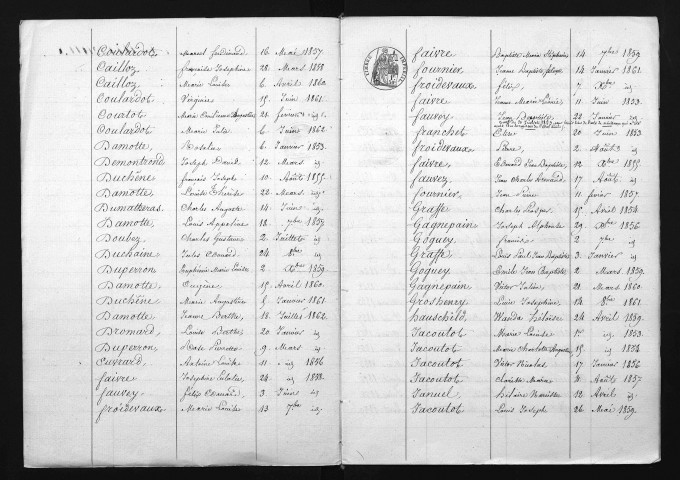 Coulardot Marcel Ferdinand 16 Mai 1857.
Cailloz françoise Joséphine 28 Mars 1858
Cailloz Marie Louise 6 Avril 1860
Coulardot Virginie 15 Juin 1861.
Couotot Marie Augustine 21 février id
Coulardot Marie Julie 6 Juin 1862.
Damotte Rosalie 6 Janvier 1853.
Demontrond Joseph David 12 Mars id
Duchêne françois Joseph 10 Août 1855.
Damotte Louise 22 Mars id
Dumatteras Charles Auguste 14 Juin id
Damotte Louis Agostine 18 7bre 1857
Doubez Charles Gustave 2 Juillet id
Duchaine Jules Edouard 24 8bre id
Duperron Marie Louise 2 Xbre 1859.
Damotte Eugène 15 Avril 1860.
Duchêne Marie Augustine 5 Janvier 1861.
Damotte Jeanne Berthe 18 Juillet 1862.
Bromard Louise Berthe 20 Janvier id
Duperron Rose 9 Mars id
Cuvrard Antoine 11 id 1856
faivre Joséphine 24 id 1858.
fauvey félix 3 Juin id
froidevaux Marie Louise 13 7bre id
faivre Baptiste Marie 14 7bre 1859.
fournier Jeanne Baptiste 14 Janvier 1861.
froidevaux félix 7 Xbre id
faivre Jeanne Marie 11 Juin 1853.
fauvey Jean Baptiste 22 Janvier id
franchet 20 Juin 1853
froidevaux Pierre 2 Août id
faivre Edmond Jean Baptiste 12 Xbre 1855
fauvez Jean Charles Armand 17 Août id
fournier Jean Pierre 11 fevrier 1857.
Graffe Charles 15 Avril 1854
Gagnepain Joseph Alphonse 29 Xbre 1856
Goguey francis 2 7bre id
Graffe Louis Paul Jean Baptiste 3 Janvier id
Goguey Emile Jean Baptiste 2 Mars 1859.
Gagnepain Victor Julien 21 Mars 1860.
Groshenry Louise Joséphine 14 8bre 1861.
hauschild Wanda Héloise 24 Avril 1859.
Jacoutot Marie Louise 17 id 1853.
Jacoutot Marie Charlotte Augustine 15 id 1854
Jacoutot Victor Nicolas 17 Janvier 1856
Jacoutot Clarisse Maria 4 Août 1857
Januel hélaire 12 Avril id
Jacoutot Louis Joseph 26 Mai 1859.